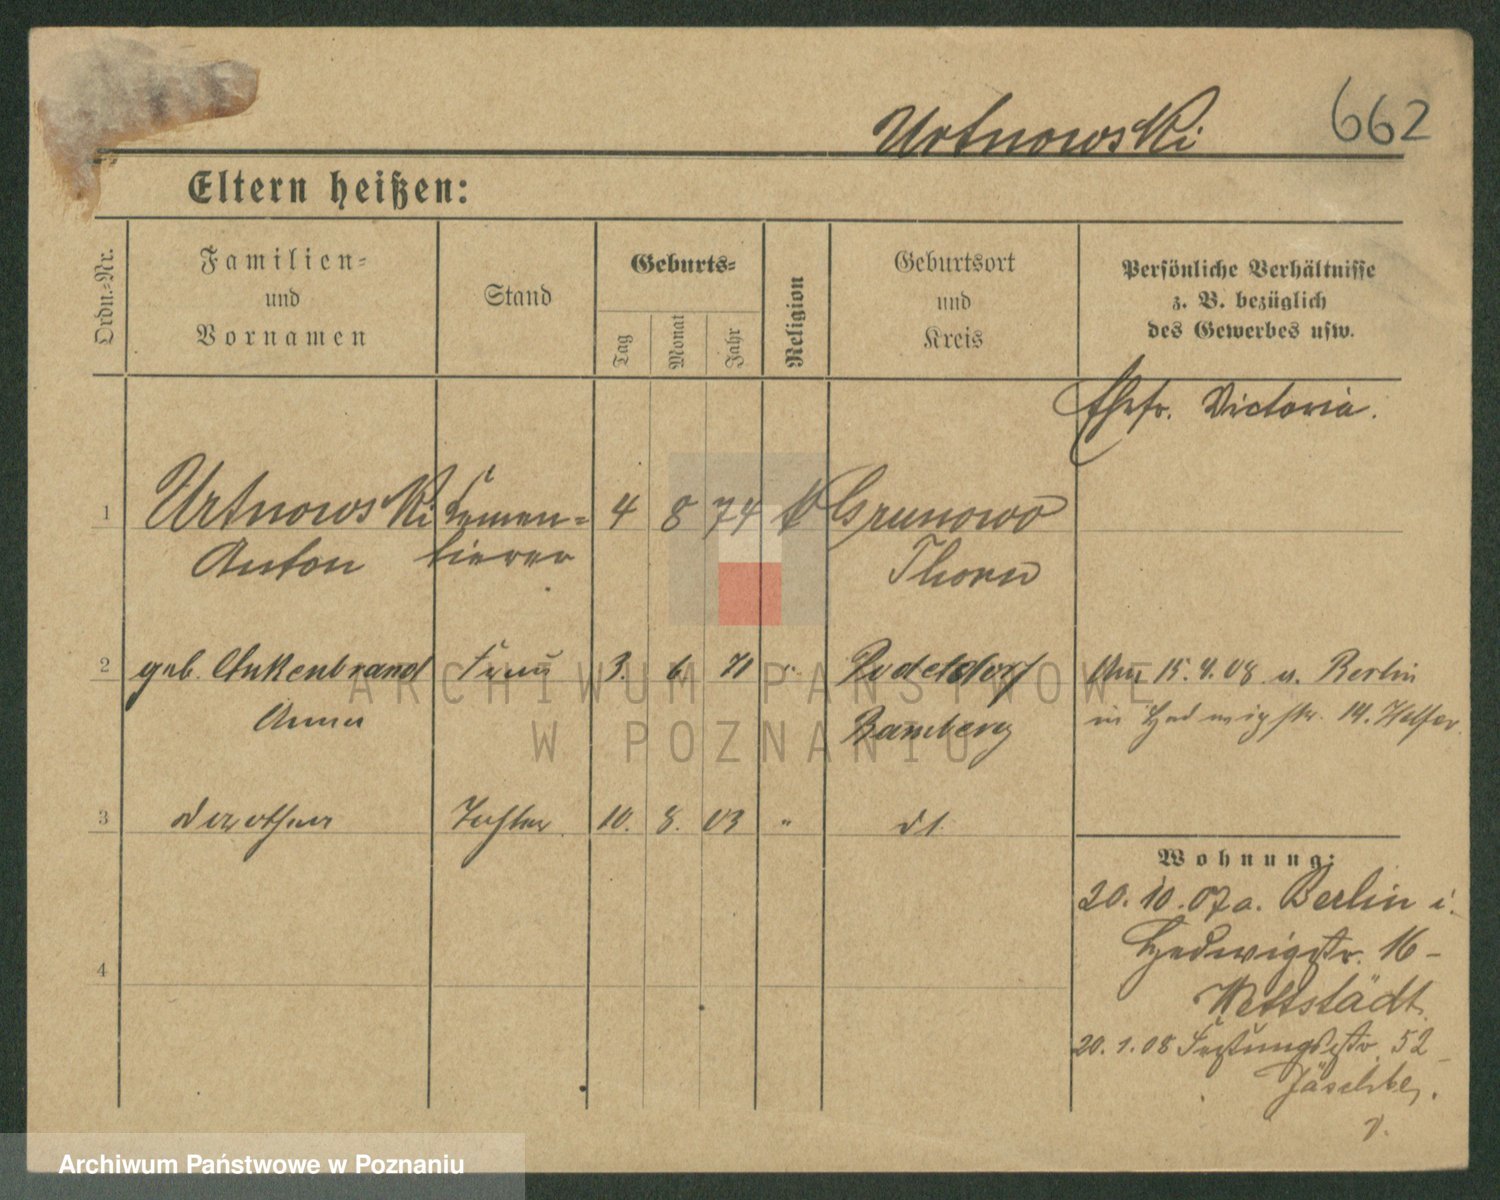 Urtnowski 662
Eltern heißen:
Ordn.-Nr.
Familien-
und
Vornamen
Stand
Geburts-
Tag
Monat
Jahr
Religion
Geburtsort
und
Kreis
Persönliche Verhältnisse
z. B. bezüglich
des Gewerbes usw.
Ehefr. Victoria.
1 Urtnowski Zemen- 4 8 74 k Grunowo
Anton tierer Thorn
2 geb. Ankenbrand Frau 3. 6. 71 " Am 15. 4. 08 a. Berlin
Anna Bamberg in Hedwigstr. 14.
3 Dorothea Tochter 10. 8. 03 " dt.
Wohnung:
20. 10. 07 a. Berlin i.
Hedwigstr. 16 -
Wettstädt.
20. 1. 08 Festungsstr. 52 -
4
ARCHIWUM PAŃSTWOWE
W POZNANIU
Archiwum Państwowe w Poznaniu